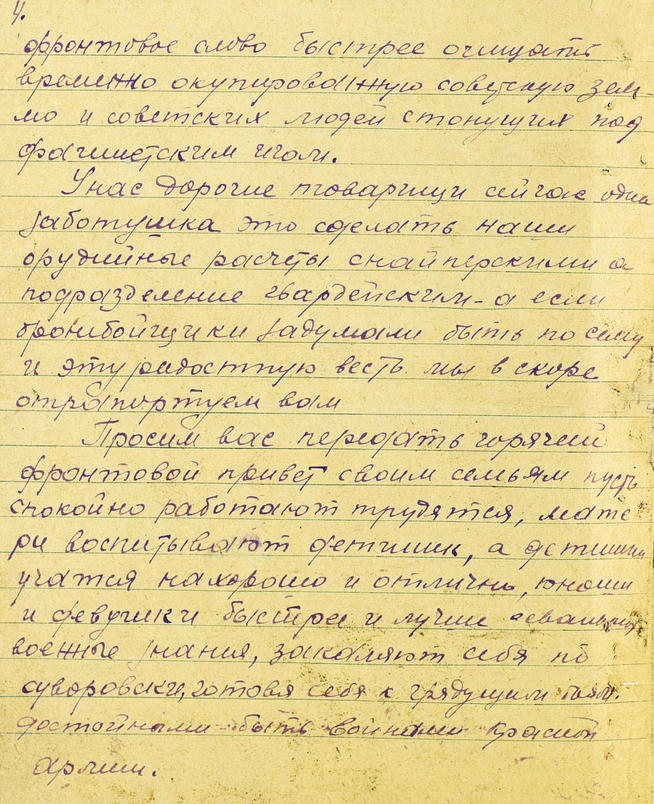 4.
фронтовое слово быстрее очищать
временно окупированную советскую зем-
лю и советских людей стонущих под
фашистским игом.
У нас дорогие товарищи сейчас одна
заботушка это сделать наши
орудийные расчеты снайперскими а
подразделение гвардейским - а если
бронибойщики задумали быть по сему
и эту радостную весть мы в скоре
отрапортуем вам
Просим вас передать горячей
фронтовой привет своим семьям пусть
спокойно работают трудятся, мате
ри воспитывают детишик, а детишки
учатся на хорошо и отлично, юноши
и девушки быстрее и лучше
военные знания, закаляют себя по
суворовски, готовя себя к грядущим боям.
достойными быть воинами красной
армии.